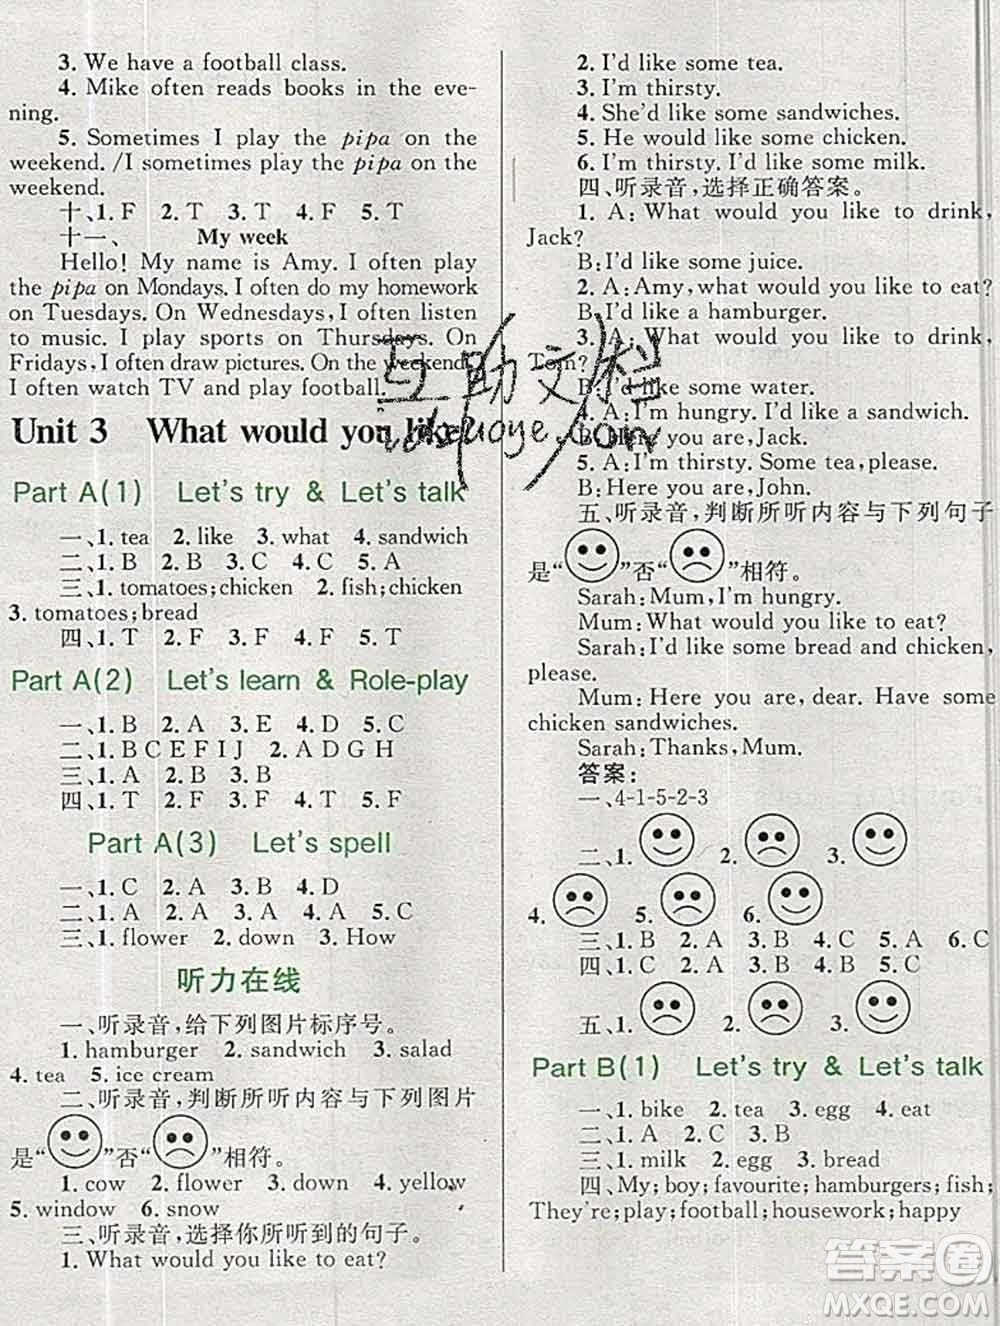 3. We have a football class.
4. Mike often reads books in the eve-
ning.
5. Sometimes I play the pipa on the
weekend. /I sometimes play the pipa on the
weekend.
十、1. F 2. T 3. T 4. F 5. T
十一、 My week
Hello! My name is Amy. I often play
the pipa on Mondays. I often do my homework
on Tuesdays. On Wednesdays, I often listen
to music. I play sports on Thursdays. On
Fridays, I often draw pictures. On the weekend,
I often watch TV and play football.
Unit 3 What would you like?
Part A(1) Let's try & Let's talk
一、1. tea 2. like 3. what 4. sandwich
二、1. B 2. B 3. C 4. C 5. A
三、1. tomatoes; chicken 2. fish; chicken
3. tomatoes; bread
四、1. T 2. F 3. F 4. F 5. T
Part A(2) Let's learn & Role-play
一、1. B 2. A 3. E 4. D 5. C
二、1. B C E F I J 2. A D G H
三、1. A 2. B 3. B
四、1. T 2. F 3. F 4. T 5. F
Part A(3) Let's spell
一、1. C 2. A 3. B 4. D
二、1. A 2. A 3. B 4. A 5. C
三、1. flower 2. down 3. How
听力在线
一、听录音,给下列图片标序号。
1. hamburger 2. sandwich 3. salad
4. tea 5. ice cream
二、听录音,判断所听内容与下列图片
是“ ”否“ ”相符。
1. cow 2. flower 3. down 4. yellow
5. window 6. snow
三、听录音,选择你所听到的句子。
1. What would you like to eat?
2. I'd like some tea.
3. I'm thirsty.
4. She'd like some sandwiches.
5. He would like some chicken.
6. I'm thirsty. I'd like some milk.
四、听录音,选择正确答案。
1. A: What would you like to drink,
Jack?
B: I'd like some juice.
2. A: Amy, what would you like to eat?
B: I'd like a hamburger.
3. A: What would you like to drink,
Tom?
B: I'd like some water.
4. A: I'm hungry. I'd like a sandwich.
B: Here you are, Jack.
5. A: I'm thirsty. Some tea, please.
B: Here you are, John.
五、听录音,判断所听内容与下列句子
是“ ”否“ ”相符。
Sarah: Mum, I'm hungry.
Mum: What would you like to eat?
Sarah: I'd like some bread and chicken,
please.
Mum: Here you are, dear. Have some
chicken sandwiches.
Sarah: Thanks, Mum.
答案:
一、4-1-5-2-3
二、1. 2. 3.
4. 5. 6.
三、1. B 2. A 3. B 4. C 5. A 6. C
四、1. C 2. A 3. B 4. C 5. A
五、1. 2. 3.
Part B(1) Let's try & Let's talk
一、1. bike 2. tea 3. egg 4. eat
二、1. A 2. C 3. B
三、1. milk 2. egg 3. bread
四、My; boy; favourite; hamburgers; fish;
They're; play; football; housework; happy
互助文档
答案圈
MXQE.COM